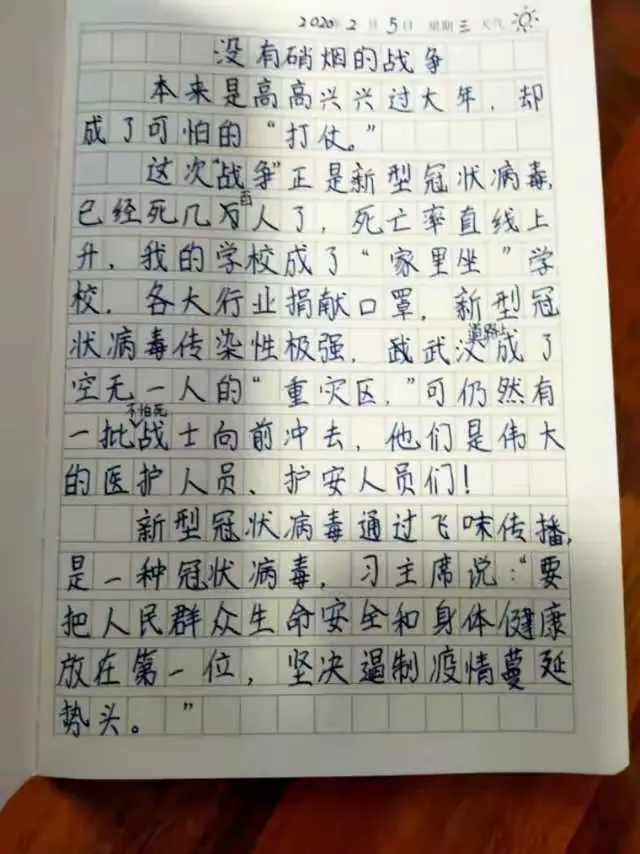 2020年2月5日 星期三 天气
没有硝烟的战争
本来是高高兴兴过大年，却
成了可怕的“打仗。”
这次“战争”正是新型冠状病毒，
已经死几百人了，死亡率直线上
升，我的学校成了“家里坐”学
校，各大行业捐献口罩，新型冠
状病毒传染性极强，武汉道路上成了
空无一人的“重灾区，”可仍然有
一批不怕死战士向前冲去，他们是伟大
的医护人员、护安人员们！
新型冠状病毒通过飞味传播，
是一种冠状病毒，习主席说：“要
把人民群众生命安全和身体健康
放在第一位，坚决遏制疫情蔓延
势头。”